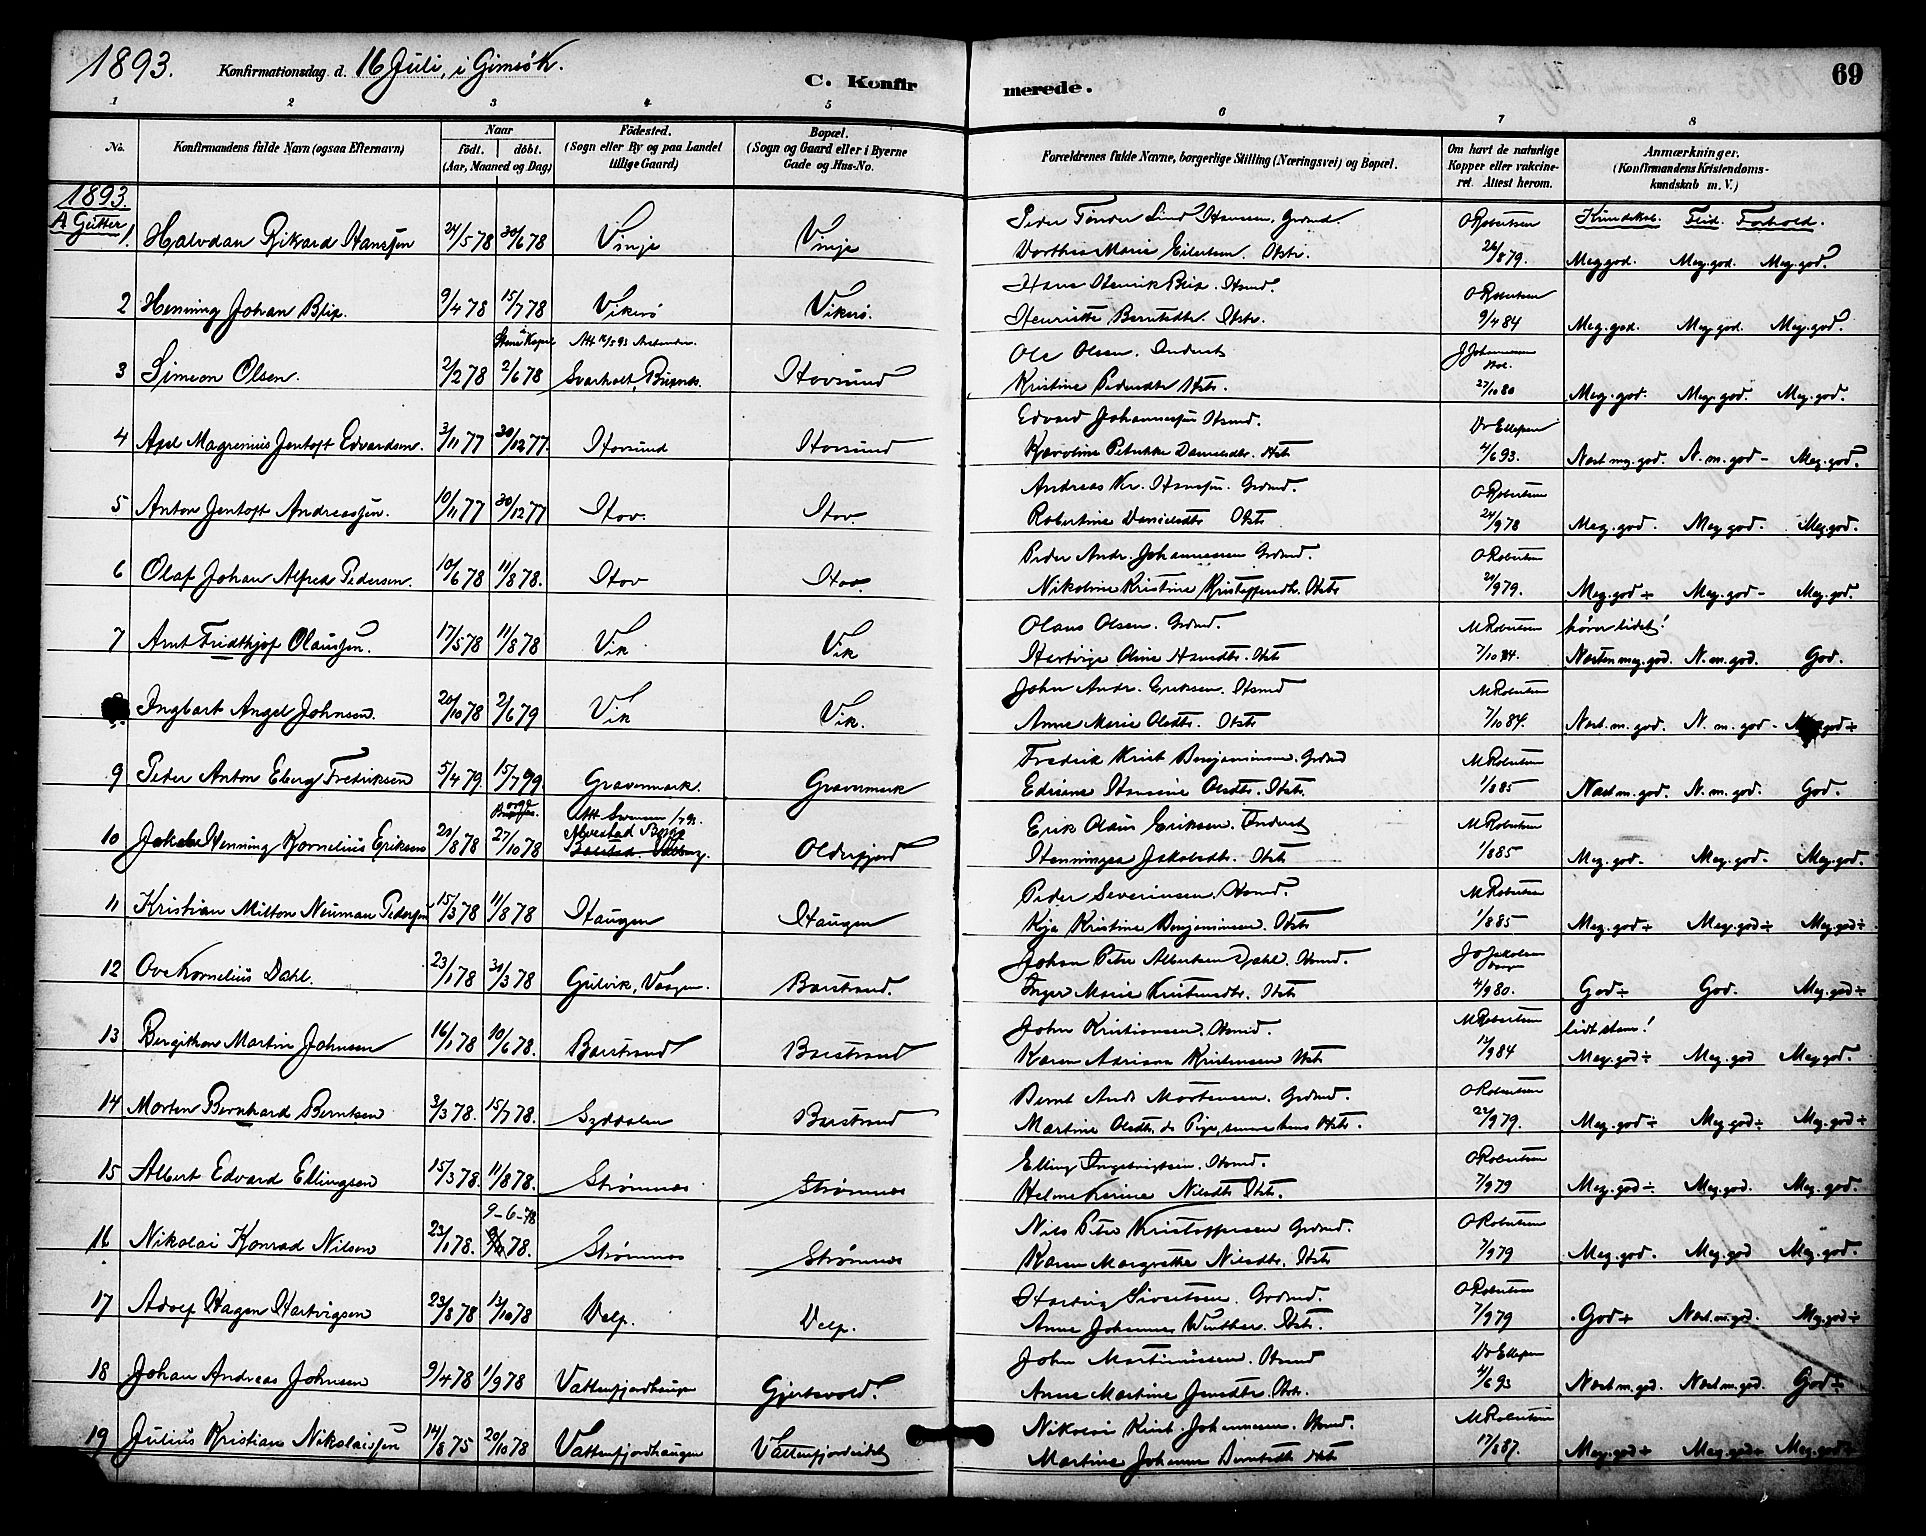 1893. Konfirmationsdag d. 16 Juli, i Gimsö K.
C. Konfirmerede.
69
1 2 3 4 5 6 7 8
No.
Konfirmandens fulde Navn (ogsaa Efternavn)
Naar
födt. döbt.
(Aar, Maaned og Dag)
Födested.
(Sogn eller By og paa Landet
tillige Gaard)
Bopæl.
(Sogn og Gaard eller i Byerne
Gade og Hus-No.
Forældrenes fulde Navne, borgerlige Stilling (Næringsvei) og Bopæl.
Om havt de naturlige
Kopper eller vakcine-
ret. Attest herom.
Anmærkninger.
(Konfirmandens Kristendoms-
kundskab m. V.)
1893.
A Gutter
Kundskab. Flid. Forhold.
1 Halvdan Rikard Hanssen 24/5 78 30/6 78 Vinje Vinje
Peder Tønder Lind Hanssen. Grdmd. O Robertsen
Dorthea Marie Eilertsen. Hstr. 26/8 79. Meg. god. Meg. god. Meg. god.
2 Henning Johan Blix. 9/4 78 15/7 78 Vikerö Vikerö.
Hans Henrik Blix. Hsmd. O Robertsen
Henriette Berntsdtr. Hstr. 9/4 84 Meg. god. Meg. god. Meg. god.
3 Simeon Olsen. 2/2 78 2/6 78 Svarholt, Hovsund
Ole Olsen. Inderst J Johannessen
Kristine Pedersdtr Hstr. 27/10 80 Meg. god. Meg. god. Meg. god.
4 Axel Magrenius Jentoft Edvardsen. 3/11 77 30/12 77. Hovsund Hovsund
Edvard Johannessen Hsmd. Dr Ellefsen
Karoline Petrikke Danielsdtr. Hstr 4/6 93. Næst. mg. god. N. m. god- Meg. god.
5 Anton Jentoft Andreassen. 10/11 77 30/12 77 Hov. Hov.
Andreas Kr. Hanssen. Grdmd. O Robertsen
Robertine Danielsdtr Hstr 24/9 78 Meg. god. Meg god. Meg. god.
6 Olaf Johan Alfred Pedersen. 10/6 78 11/8 78. Hov Hov.
Peder Andr. Johannessen Grdmd. O Robertsen
Nikoline Kristine Kristoffersdtr. Hstr 20/9 79. Meg. god÷ Meg. god- Meg. god.
7 Arnt Fredthjof Olaussen. 17/5 78 11/8 78 Vik. Vik
Olaus Olsen. Grdmd. M Robertsen hörer lidet!
Hartvige Oline Hansdtr. Hstr 7/10 84. Næsten meg. god. N. m. god. God.
8 Ingbart Angel Johnsen. 20/10 78 2/6 79 Vik Vik.
John Andr. Eriksen. Hsmd M Robertsen
Anne Marie Olsdtr. Hstr 7/10 84. Næst. m. god. N. m. god- Meg. god÷
9 Peder Anton Eberg Fredriksen 5/4 79. 15/7 79 Gravermark. Gravermark
Fredrik Krist Benjaminsen. Grdmd M Robertsen
Hansine Olsdtr. Hstr. 1/8 85 Næst m. god. N. m. god. God.
10 Jakob Henning Kornelius Eriksen 20/8 78 27/10 78 Alvestad Borge Oldefjord
Erik Olaus Eriksen. Inderst M Robertsen
Henningea Jakobsdtr. Hstr 1/8 85 Meg. god. Meg. god. Meg. god.
11 Kristian Milton Neuman Pedersen 15/3 78 11/8 78 Haugen Haugen
Peder Severinsen. Hsmd. M Robertsen
Kristine Benjaminsen. Hstr 1/8 85 Meg. god÷ Meg. god÷ Meg. god÷
12 Ove Kornelius Dahl. 23/1 78 31/3 78 Gulvik, Vaagen. Barstrand.
Johan Peter Albertsen Dahl. Hsmd. Jakobsen
Inger Marie Kristensdtr. Hstr 4/9 80. God÷ God. Meg. god÷
13 Bergithon Martin Johnsen 16/1 78 10/6 78. Barstrand Barstrand
John Kristiansen. Hsmd. M Robertsen lidt stam!
Karen Adriana Kristensen Hstr 17/9 84 Meg. god÷ Meg. god Meg god.
14 Morten Bernhard Berntsen 3/3 78. 15/7 78. Syddalen Barstrand
Bernt Andr Mortensen. Grdmd. O Robertsen
Martine Olsdtr, da Pige, senere hans Hstr. 22/9 79. Meg. god÷ Meg. god÷ Meg. god÷
15 Albert Edvard Ellingsen 15/3 78. 11/8 78. Strömnæs Strömnæs
Elling Ingebrigtsen. Hsmd. O Robertsen
Nilsdtr Hstr. 7/9 79 Meg. god÷ Meg. god. Meg. god.
16 Nikolai Konrad Nilsen 23/1 78. 9-6-78 Strömnæs Strömnæs
Nils Peter Kristoffersen Grdmd. O Robertsen
Karen Margrethe Nilsdtr. Hstr 7/9 79 Meg. god. Meg. god Meg. god.
17 Adolf Hagen Hartvigsen 23/8 78 13/10 78 Delp. Delp.
Hartvig Sivertsen. Grdmd. O Robertsen
Anne Johannes Winther. Hstr. 7/9 79 God+ Næst. m. god. Meg. god÷
18 Johan Andreas Johnsen 9/4 78 1/9 78 Vattenfjordhaugen Gjertsvold.
John Martinussen. Hsmd Dr Ellefsen
Anne Martine Jensdtr. Hstr. 4/6 93 Næst m. god. Næst m. god. God÷
19 Julius Kristian Nikolaissen 14/8 75 20/10 78 Vattenfjordhaugen Vattenfjordeidet
Nikolai Krist Johannessen. Hsmd. M Robertsen
Martine Johanna Berntsdtr Hstr 17/8 87. Meg. god+ Meg. god+ Meg. god+